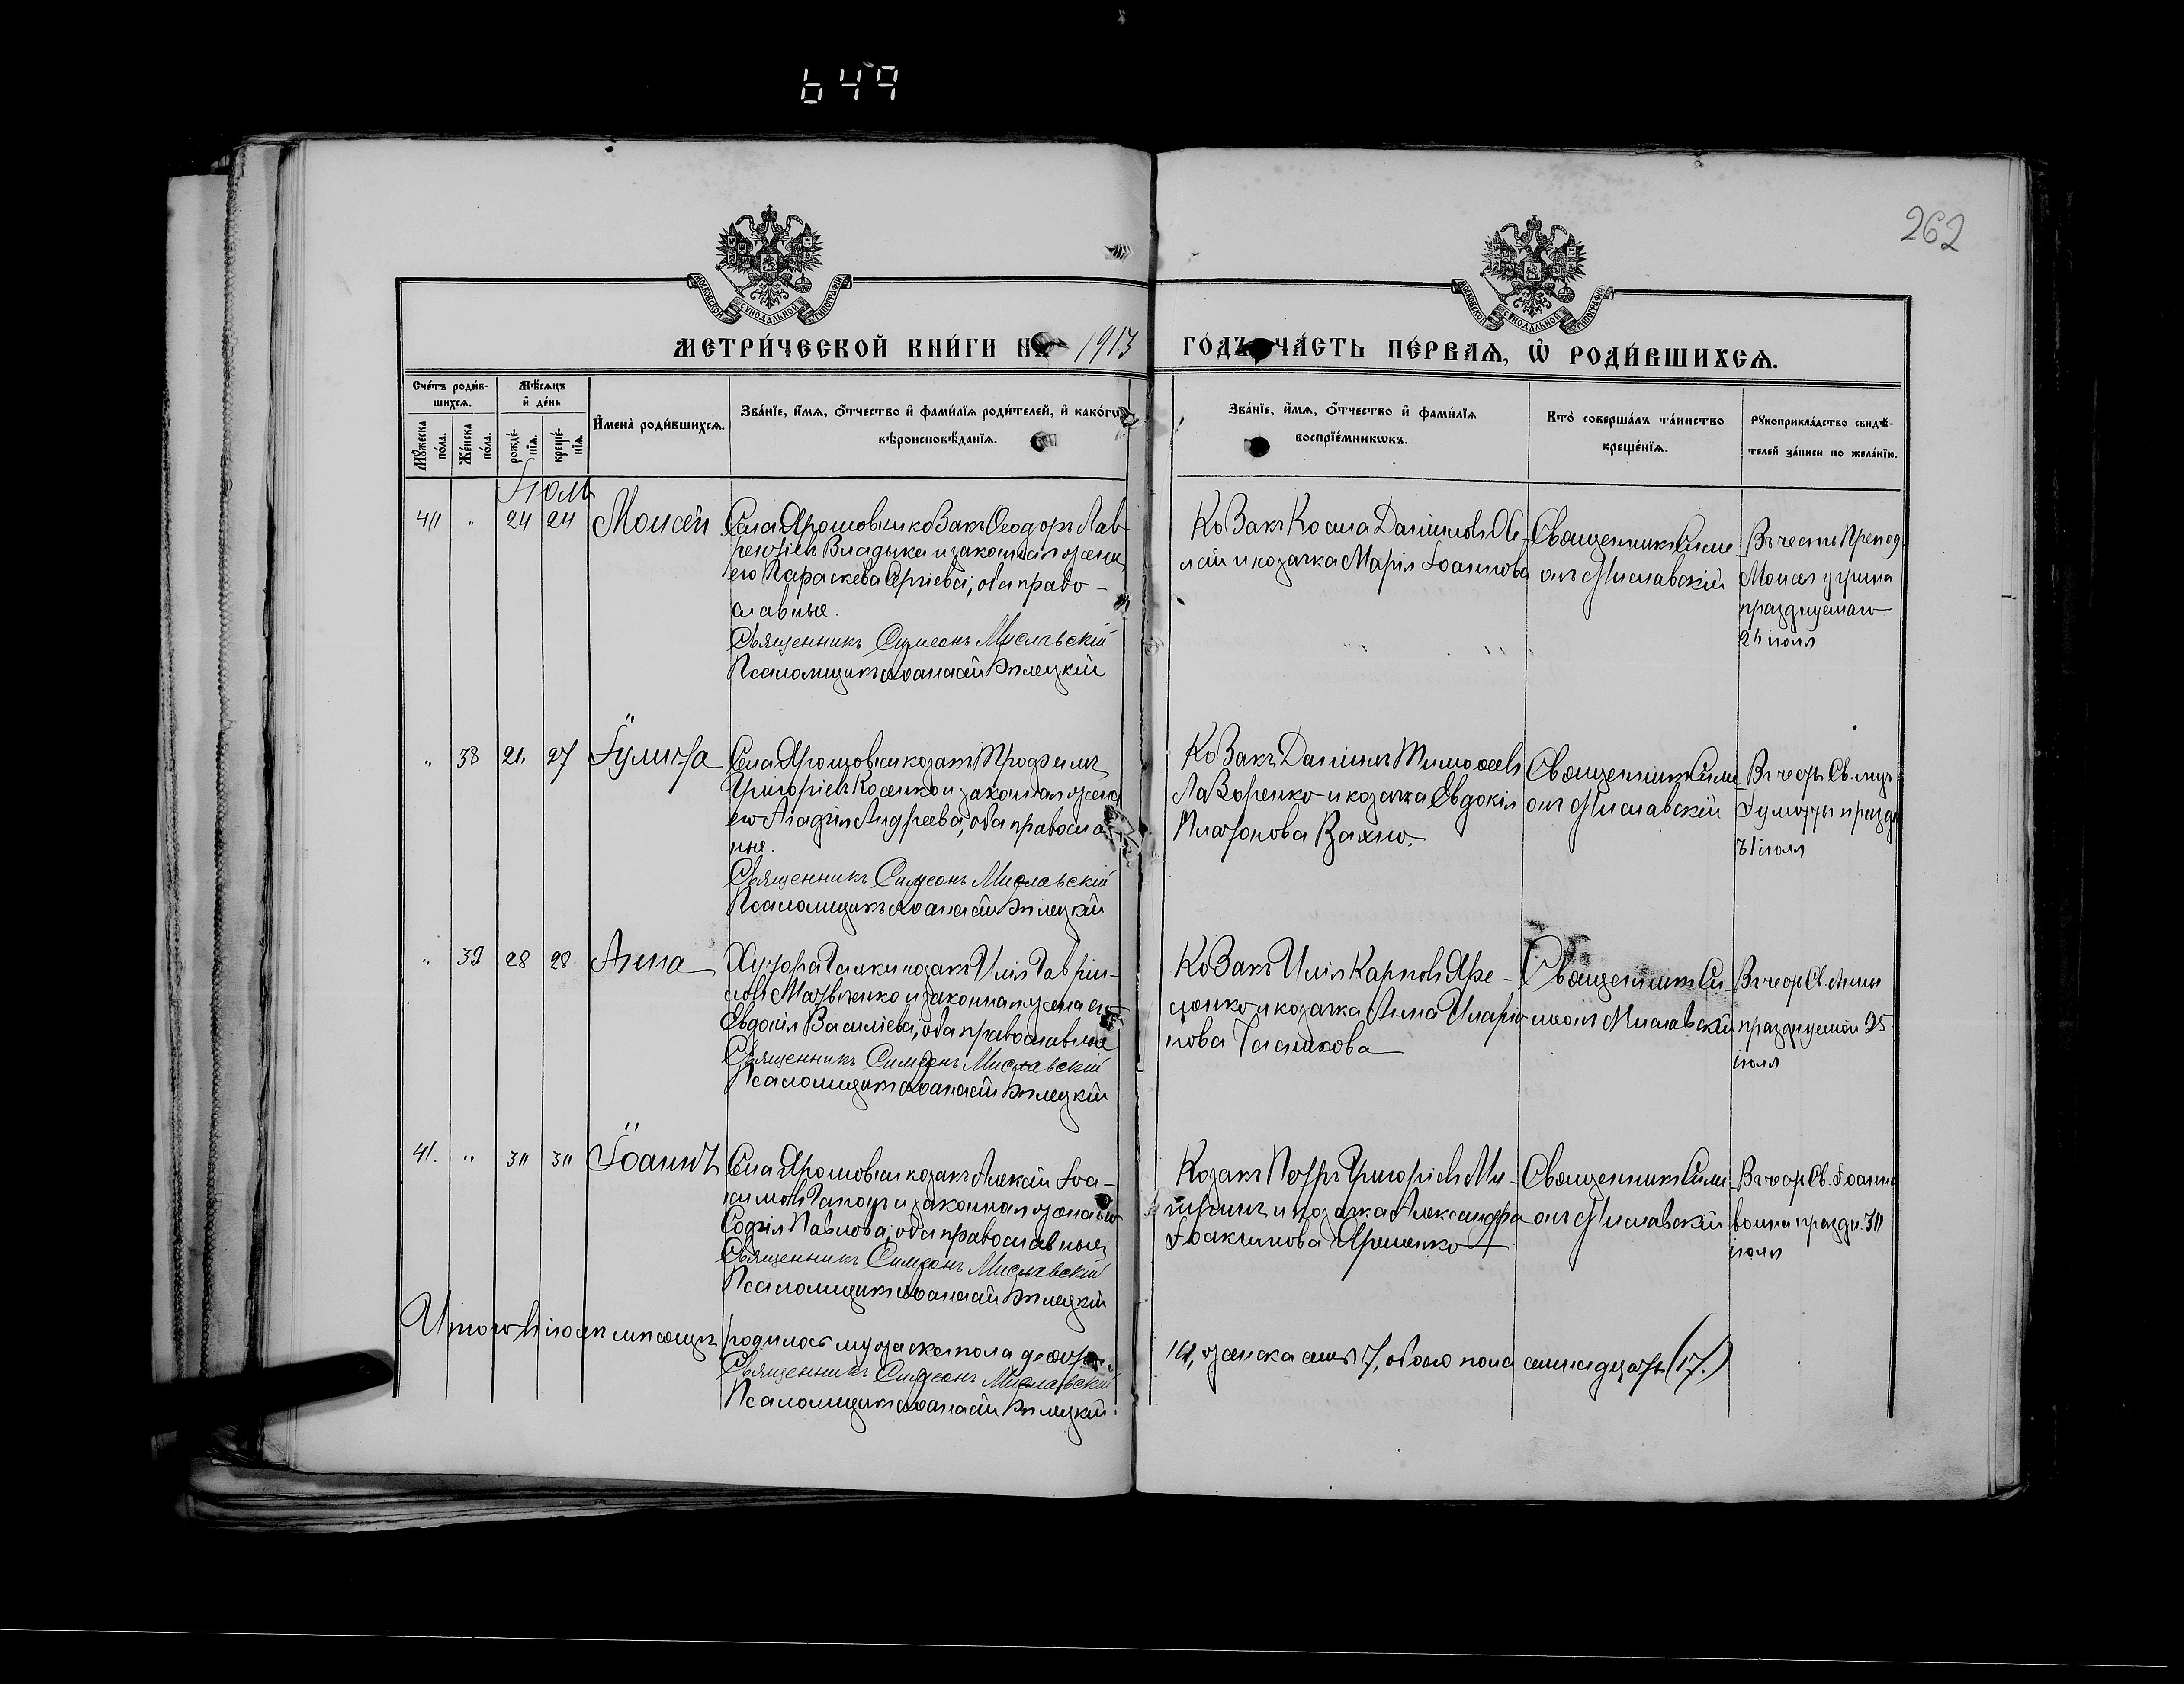 649
262
МОСКОВСКОЙ СѴНОДАЛЬНОЙ ТИПОГРАФІИ
МОСКОВСКОЙ СѴНОДАЛЬНОЙ ТИПОГРАФІИ
МЕТРИ́ЧЕСКОЙ КНИ́ГИ НА 1913 ГОДЪ ЧА́СТЬ ПЕ́РВАѦ, Ѡ҆ РОДИ́ВШИХСѦ.
Сче́тъ роди́в-
шихсѧ.
Мꙋ́жеска по́ла.
Же́нска по́ла.
Мѣ́сѧцъ и҆ де́нь
рожде́-нїѧ.
креще́-нїѧ.
И҆мена̀ роди́вшихсѧ.
Зва́нїе, и҆́мѧ, ѻ҆́тчество и҆ фами́лїѧ роди́телей, и҆ како́гѡ
вѣроисповѣ́данїѧ.
Зва́нїе, и҆́мѧ, ѻ҆́тчество и҆ фами́лїѧ
воспрїе́мникѡвъ.
Кто̀ соверша́лъ та́инство
креще́нїѧ.
Рꙋкоприкла́дство свидѣ́-
телей за́писи по жела́нїю.
Іюль
40 " 24 24 Моисей
Села Ярошовки козакъ Ѳеодоръ Лав-
рентіевъ Владыка и законная жена
его Параскева Сргіева, оба право-
славные.
Священникъ Симеонъ Миславскій
Псаломщикъ Аѳанасій Билецкій
Козакъ Косма Даніиловъ
и козачка Марія Іоаннова
Священникъ Симе-
онъ Миславскій
Въ честь Препод
Моисея угрина
празднуемаго
26 іюля
" 38 21. 27 Іулитта
Села Ярошовки козакъ Трофимъ
Григоріевъ Косенко и законная жена
его Агафія Андреева, оба православ
ные.
Священникъ Симеонъ Миславскій
Псаломщикъ Аѳанасій Билецкій
Козакъ Даніилъ Тимоѳеевъ
Лазоренко и козачка Евдокія
Платонова Вахно.
Священникъ Симе-
онъ Миславскій
Въ честь Св. муц
Іулитты праздн
іюля
" 39 28 28 Анна
Хутора козакъ Илія Гавріи-
ловъ Матвіенко и законная жена его
Евдокія Василіева, оба православные
Священникъ Симеонъ Миславскій
Псаломщикъ Аѳанасій Билецкій
Козакъ Илія Карповъ Яре-
менко и козачка Анна Иларіо
нова
Священникъ Си-
меонъ Миславскій
Въ честь Св. Анны
празднуемой 25
іюля
41. " 30 30 Іоаннъ
Села Ярошовки козакъ Алексій Іоа-
кимовъ и законная жена его
Софія Павлова, оба православные
Священникъ Симеонъ Миславскій
Псаломщикъ Аѳанасій Билецкій
Козакъ Петръ Григоріевъ
и козачка Александра
Іоакимова Яременко
Священникъ Симе-
онъ Миславскій
Въ честь Св. Іоанна
воина праздн. 30
іюля
Итого въ іюлѣ мѣсяцѣ родилось мужеска пола десять 10, женска семь 7, обоего пола семнадцать (17.)
Священникъ Симеонъ Миславскій
Псаломщикъ Аѳанасій Билецкій